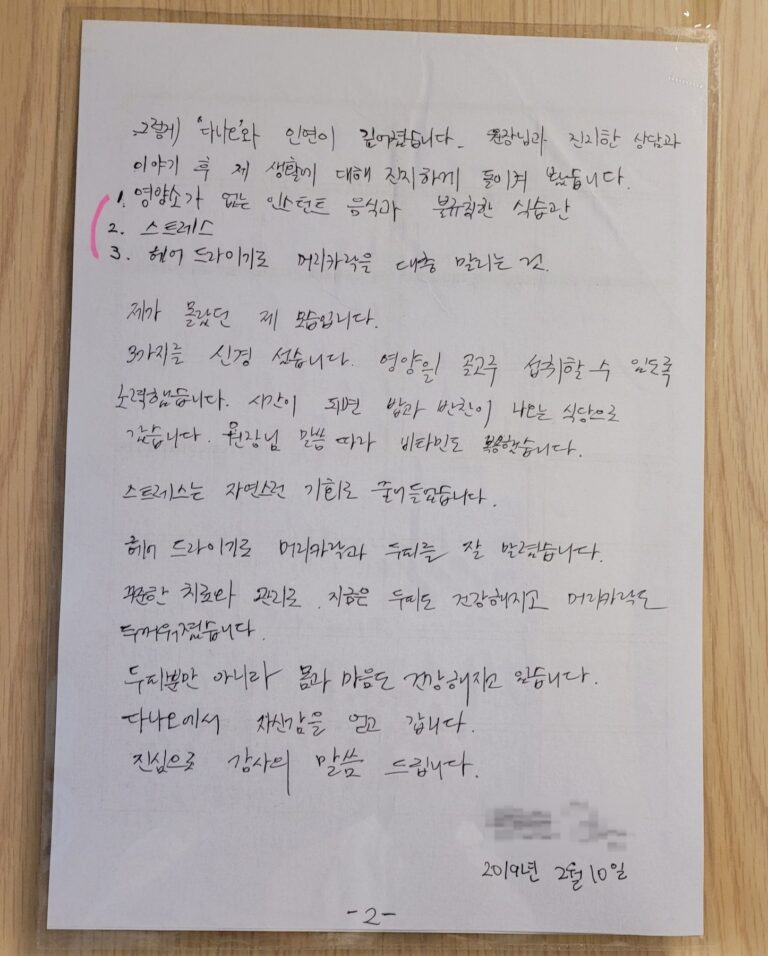 그렇게 '다나오'와 인연이 깊어졌습니다. 원장님과 진지한 상담과
이야기 후 제 생활에 대해 진지하게 돌이켜 봤습니다.
1. 영양소가 없는 인스턴트 음식과 불규칙한 식습관
2. 스트레스
3. 헤어 드라이기로 머리카락을 대충 말리는 것.
제가 몰랐던 제 모습입니다.
3가지를 신경 썼습니다. 영양을 골고루 섭취할 수 있도록
노력했습니다. 시간이 되면 밥과 반찬이 나오는 식당으로
갔습니다. 원장님 말씀 따라 비타민도 복용했습니다.
스트레스는 자연스런 기회로 줄어들었습니다.
헤어 드라이기로 머리카락과 두피를 잘 말렸습니다.
꾸준한 치료와 관리로 지금은 두피도 건강해지고 머리카락도
두꺼워졌습니다.
두피뿐만 아니라 몸과 마음도 건강해지고 있습니다.
다나오에서 자신감을 얻고 갑니다.
진심으로 감사의 말씀 드립니다.
2019년 2월 10일
-2-